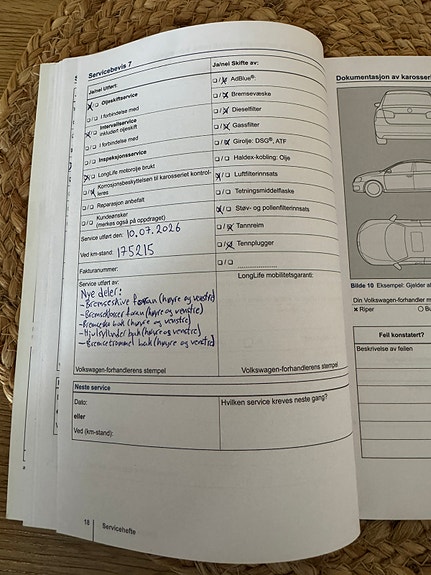 Servicebevis 7
Ja/nei Utført:
Oljeskiftservice
I forbindelse med
Intervallservice
inkludert oljeskift
I forbindelse med
Inspeksjonsservice
LongLife motorolje brukt
Korrosjonsbeskyttelsen til karosseriet kontrol-
leres
Reparasjon anbefalt
Kundeønsker
(merkes også på oppdraget)
Service utført den: 10.07.2026
Ved km-stand: 175215
Fakturanummer:
Service utført av:
Nye deler:
- Bremseskive foran (høyre og venstre)
- Bremseklosser foran (høyre og venstre)
- Bremsesko bak (høyre og venstre)
- Hjulsylinder bak (høyre og venstre)
- Bremsetrommel bak (høyre og venstre)
Volkswagen-forhandlerens stempel
Ja/nei Skifte av:
AdBlue®:
Bremsevæske
Dieselfilter
Gassfilter
Girolje: DSG®, ATF
Haldex-kobling: Olje
Luftfilterinnsats
Tetningsmiddelflaske
Støv- og pollenfilterinnsats
Tannreim
Tennplugger
LongLife mobilitetsgaranti:
Volkswagen-forhandlerens stempel
Neste service
Dato:
eller
Ved (km-stand):
Hvilken service kreves neste gang?
18 | Servicehefte
Dokumentasjon av karosseri
Bilde 10 Eksempel: Gjelder al
Din Volkswagen-forhandler m
× Riper
Feil konstatert?
Beskrivelse av feilen